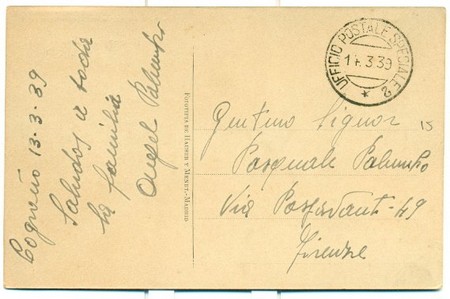 Cogneño 13-3-39
Saludos a toda
la familia
Angel Palumbo
FOTOTIPIA DE HAUSER Y MENET.-MADRID
UFFICIO POSTALE SPECIALE 2
14.3.39
15
Signor
Pasquale Palumbo
Via Passavant-49
Firenze